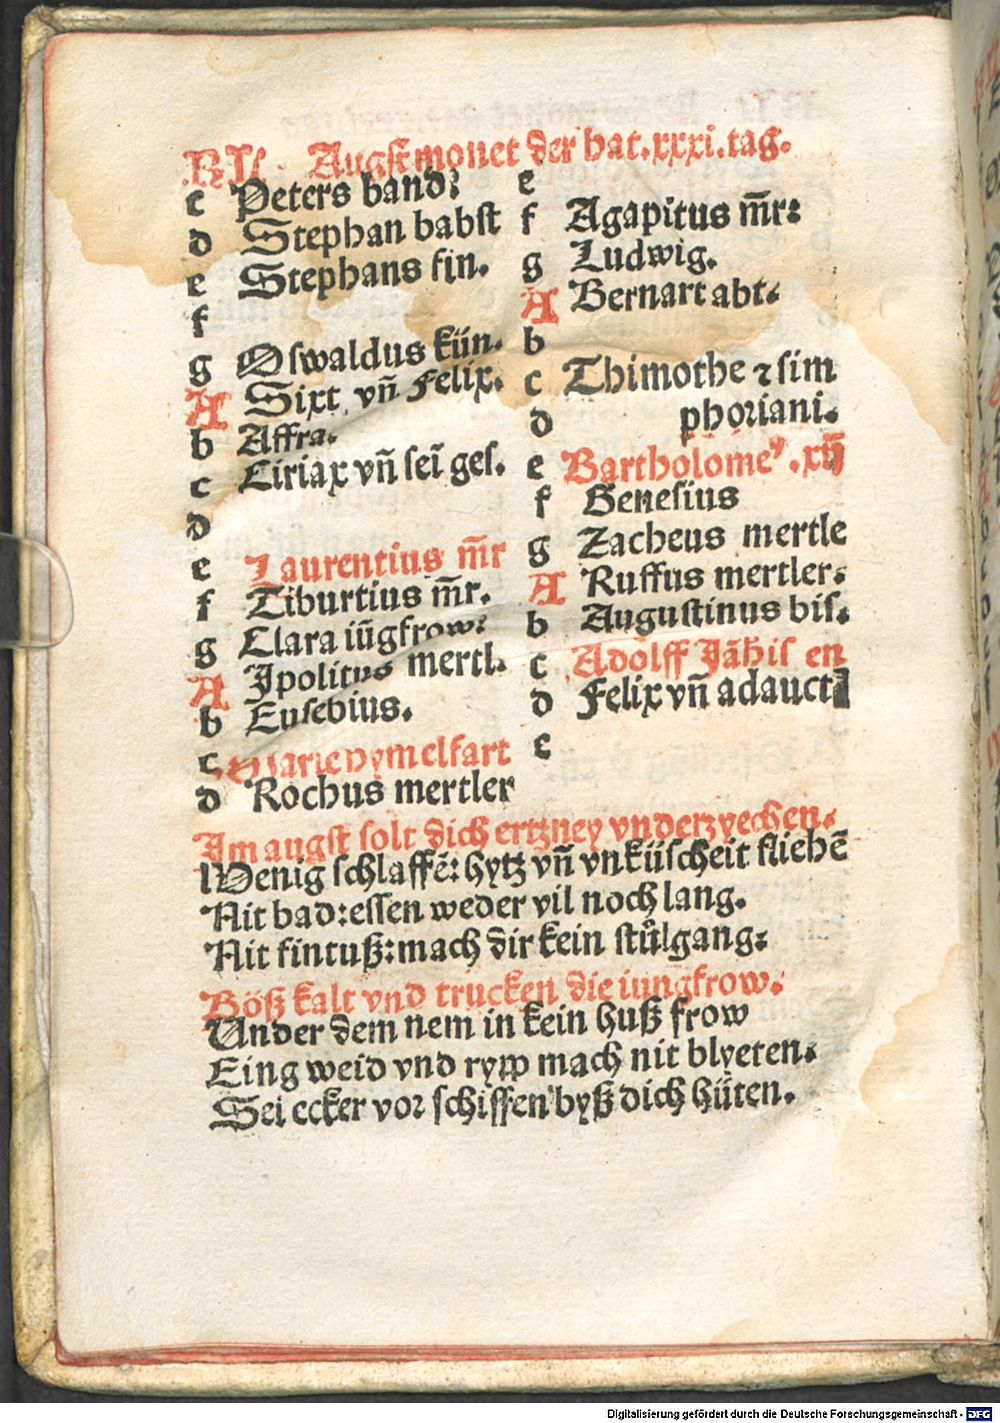 KL Augstmonet der hat .xxxi. tag.
c Peters band:
d Stephan babst
e Stephans fin.
f
g Oswaldus kün.
A Sixt vñ Felix.
b Affra.
c Ciriax vñ sei͂ ges.
d
e Laurentius m̃r
f Tiburtius m̃r.
g Clara iu͂gfrow:
A Ipolitus mertl.
b Eusebius.
c Marie hymelfart
d Rochus mertler
e
f Agapitus m̃r:
g Ludwig.
A Bernart abt:
b
c Thimothe ⁊ sim
d phoriani.
e Bartholome⁹ .xii
f Genesius
g Zacheus mertle
A Ruffus mertler:
b Augustinus bis.
c Adolff Jãhis en
d Felix vñ adauct
e
Im augst solt dich ertzney vnderzyechen.
Wenig schlaffẽ: hytz vñ vnküscheit fliehẽ
Nit bad: essen weder vil noch lang.
Nit fintuß: mach dir kein stůlgang:
Böß kalt vnd trucken die iungfrow:
Under dem nem in kein huß frow
Eing weid vnd rypp mach nit blyeten:
Sei ecker vor schiffen byß dich hüten.
Digitalisierung gefördert durch die Deutsche Forschungsgemeinschaft - DFG